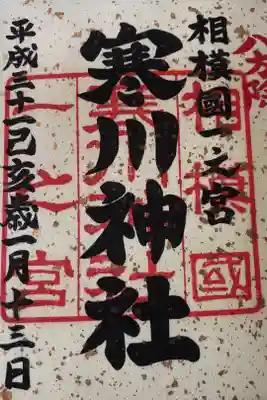 八方除
相模國一之宮
寒川神社
平成三十一己亥歳一月十三日
相模國
一之宮